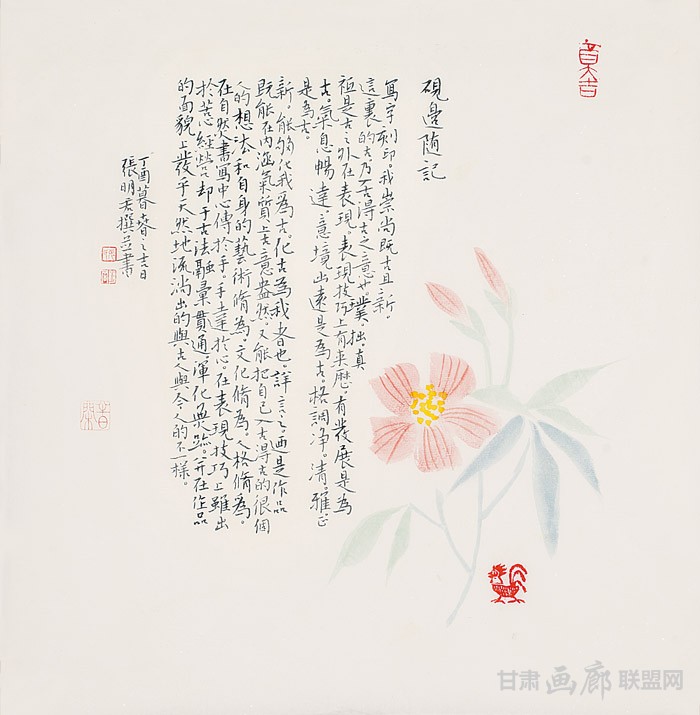 硯邊隨記
寫字刻印。我崇尚既古且新。
這裏的古乃不古得古之意也。璞、拙、真
祖是古之外在表現。表現技巧上有来歷、有發展是為
古。氣息暢達、意境幽遠是為古。格調净。清。雅正
是為古。
新。能夠化我為古。化古為我者也。詳言之。西是作品
既能在内涵氣質上古意盎然。又能把自己入古得古的很個
人的想法和自身的藝術脩為。文化脩為。人格脩為。
在自然書寫中心傳於手。手達於心。在表現技巧上雖出
於苦心經營。却于古法融彙貫通。渾化無跡。并在作品
的面貌上發乎天然地流淌出的與古人與今人的不一樣。
丁酉暮春之吉日
張明君撰並書
大吉
甘肃画廊联盟网